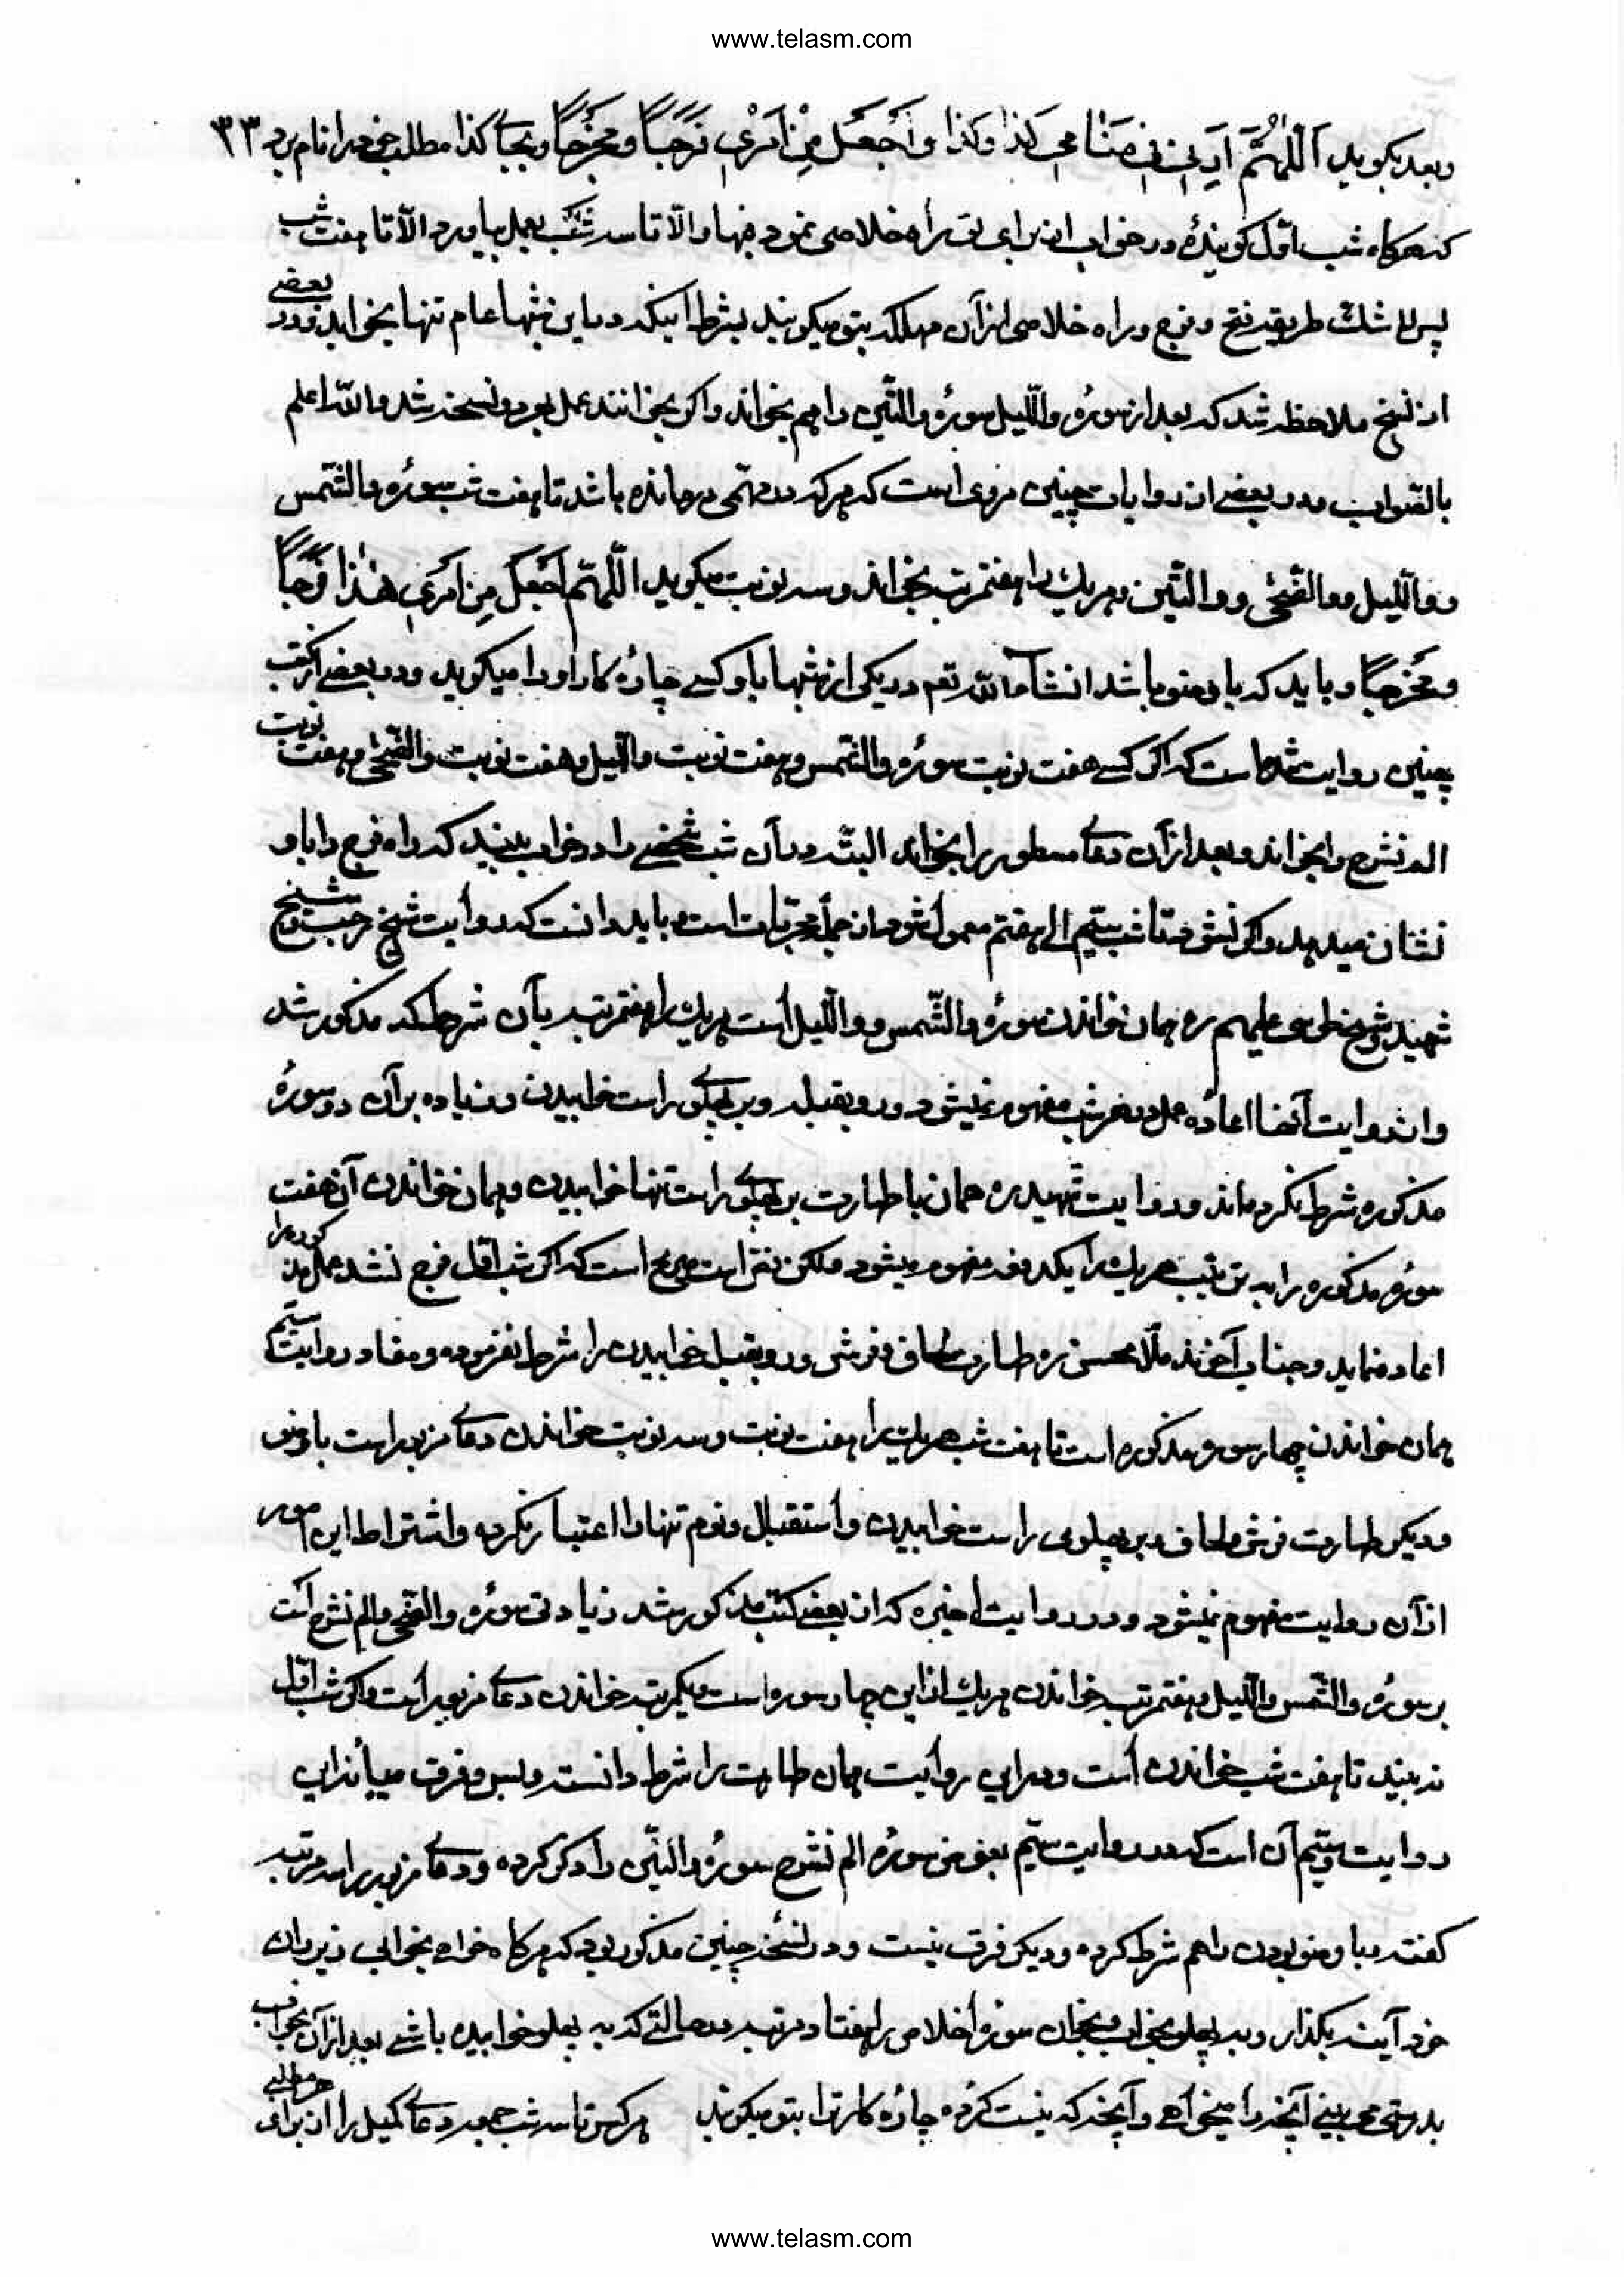 www.telasm.com
وبعد بکوید اَللّٰهُمَّ اَرِنی فی مَنامی کَذا وَکَذا وَاجْعَلْ مِنْ اَمْری فَرَجًا وَمَخْرَجًا وبجای کذا مطلب خود را نام برد ۳۳
کند هرکاه شب اوّل کوینده در خواب از برای تو راه خلاصی نمود فبها والّا تا سه شب بعمل بیاورد والّا تا هفت شب
پس بلا شک طریقه فتح وفرج وراه خلاصی از آن مهلکه بتو میکویند بشرط اینکه در این شبها عام تنها بخوابد ودر بعضی
از نسخ ملاحظه شد که بعد از سوره واللّیل سورهٔ والتّین را هم بخواند واکر بخوانند عمل بهر دو نسخه شد والله اعلم
بالصّواب ودر بعضی از روایات چنین مروی است که هرکه در مهمّی درمانده باشد تا هفت شب سوره والشّمس
و واللّیل و والضّحی و والتّین هریک را هفت مرتبه بخواند وسه نوبت بکوید اللّهمّ اجْعَلْ مِن اَمْری هٰذا فَرَجًا
ومَخْرَجًا وباید که با وضو باشد انشآءالله تعم در یکی از شبها با او کسی چاره کار او را میکوید ودر بعضی از کتب
چنین روایت شده است که اکر کسی هفت نوبت سورهٔ والشّمس وهفت نوبت واللّیل وهفت نوبت والضّحی وهفت نوبت
الم نشرح را بخواند وبعد از آن دعای مسطور را بخواند البتّه در آن شب شخصی را در خواب بیند که راه فرج را باو
نشان میدهد واکر نشود تا شب سیّم الی هفتم معمول شود از جمله مجرّبات است وباید دانست که در وایت شیخ رجب وشیخ
شهید وشیخ طوسی علیهم ره همان خواندن سورهٔ والشّمس و واللّیل است هریک را هفت مرتبه بآن شرط که مذکور شد
واز روایت آنها اعاده عمل در هر شب مفهوم نمیشود ورو بقبله وبر پهلوی راست خوابیدن وزیاده بر آن دو سورهٔ
مذکوره شرط نکرده اند ودر وایت شهید ره همان با طهارت بر پهلوی راست تنها خوابیدن وهمان خواندن آن هفت
سورهٔ مذکوره را به ترتیب هریک را یکدفعه مفهوم میشود ولکن نصّ است صریح است که اکر شب اوّل فرج نشد عمل مذکوره را
اعاده نماید وجناب آخوند ملّا محسن ره طهارت لحاف وفرش ورو بقبله خوابیدن را شرط نفرموده ومفاد روایت سیّم
همان خواندن چهار سورهٔ مذکوره است تا هفت شب هریک را هفت نوبت وسه نوبت خواندن دعای مزبور است با وضو
ودیکر طهارت فرش ولحاف وبر پهلوی راست خوابیدن واستقبال ونوم تنها را اعتبار نکرده واشتراط این امور
از آن روایت مفهوم نمیشود ودر روایت اخیره که از بعضی کتب مذکور شد زیادتی سورهٔ والضّحی والم نشرح است
بر سوره والشّمس واللّیل وهفت مرتبه خواندن هریک از این چهار سوره است ویکمرتبه خواندن دعای مزبور است واکر شب اوّل
نه بیند تا هفت شب خواندن است ودر این روایت همان طهارت را شرط دانسته وبس وفرق میانه این
روایت وسیّم آن است که در روایت سیّم بعوض سوره الم نشرح سورهٔ والتّین را ذکر کرده ودعای مزبور را سه مرتبه
کفته وبا وضو بودن را هم شرط کرده ودیکر فرق نیست ودر نسخه چنین مذکور بود که هرکاه خواهی بخوابی زیر ران
خود آینه بکذار وبه پهلو بخواب وبخوان سوره اخلاص را هفتاد مرتبه در حالتی که به پهلو خوابیده باشی بعد از آن بخواب
بدرستی می بینی آنچه را میخواهی وآنچه که نیست کرده چاره کار ترا بتو میکویند هرکس تا سه شب جمعه دعای کمیل را از برای هر مطلبی
www.telasm.com